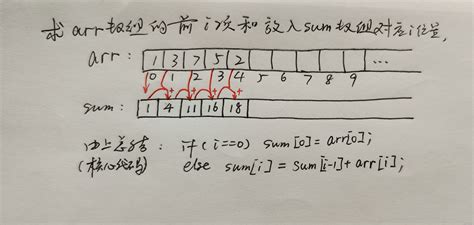 求arr数组的前i项和放入sum数组对应i位置,
arr: 1 3 7 5 2 ...
0 1 2 3 4 5 6 7 8 9
+ + + +
sum: 1 4 11 16 18
由上总结: if(i==0) sum[0]=arr[0];
(核心代码) else sum[i]=sum[i-1]+arr[i];